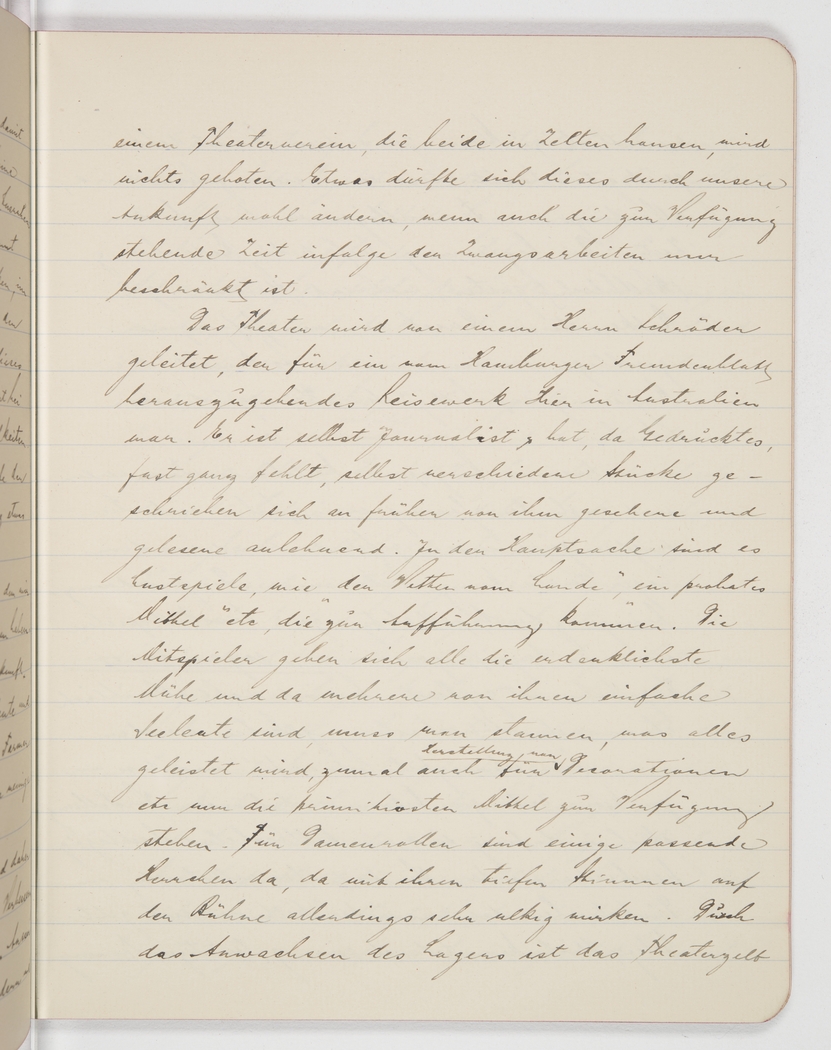 einem Theaterverein, die beide in Zelten hausen, wird
nichts geboten. Etwas dürfte sich dieses durch unsere
Ankunft wohl ändern, wenn auch die zur Verfügung
stehende Zeit infolge der Zwangsarbeiten nur
beschränkt ist.
Das Theater wird von einem Herrn Schröder
geleitet, der für ein vom Hamburger Fremdenblatt
herauszugehendes Reisewerk hier in Australien
war. Er ist selbst Journalist & hat, da Gedrucktes,
fast ganz fehlt, selbst verschiedene Stücke ge-
schrieben sich an früher von ihm gesehene und
gelesene anlehnend. In der Hauptsache sind es
Lustspiele, wie der Vetter vom Lande", ein probates
Mittel" etc, die zur Aufführung kommen. Die
Mitspieler geben sich alle die erdenklichste
Mühe und da mehrere von ihnen einfache
Seeleute sind, muss man staunen, was alles
geleistet wird, zumal auch für Herstellung von Decorationen
etc nur die primitivsten Mittel zur Verfügung
stehen. Für Damenrollen sind einige passende
Herrchen da, da mit ihren tiefen Stimmen auf
der Bühne allerdings sehr ulkig wirken. Durch
das Anwachsen des Lagers ist das Theaterzelt